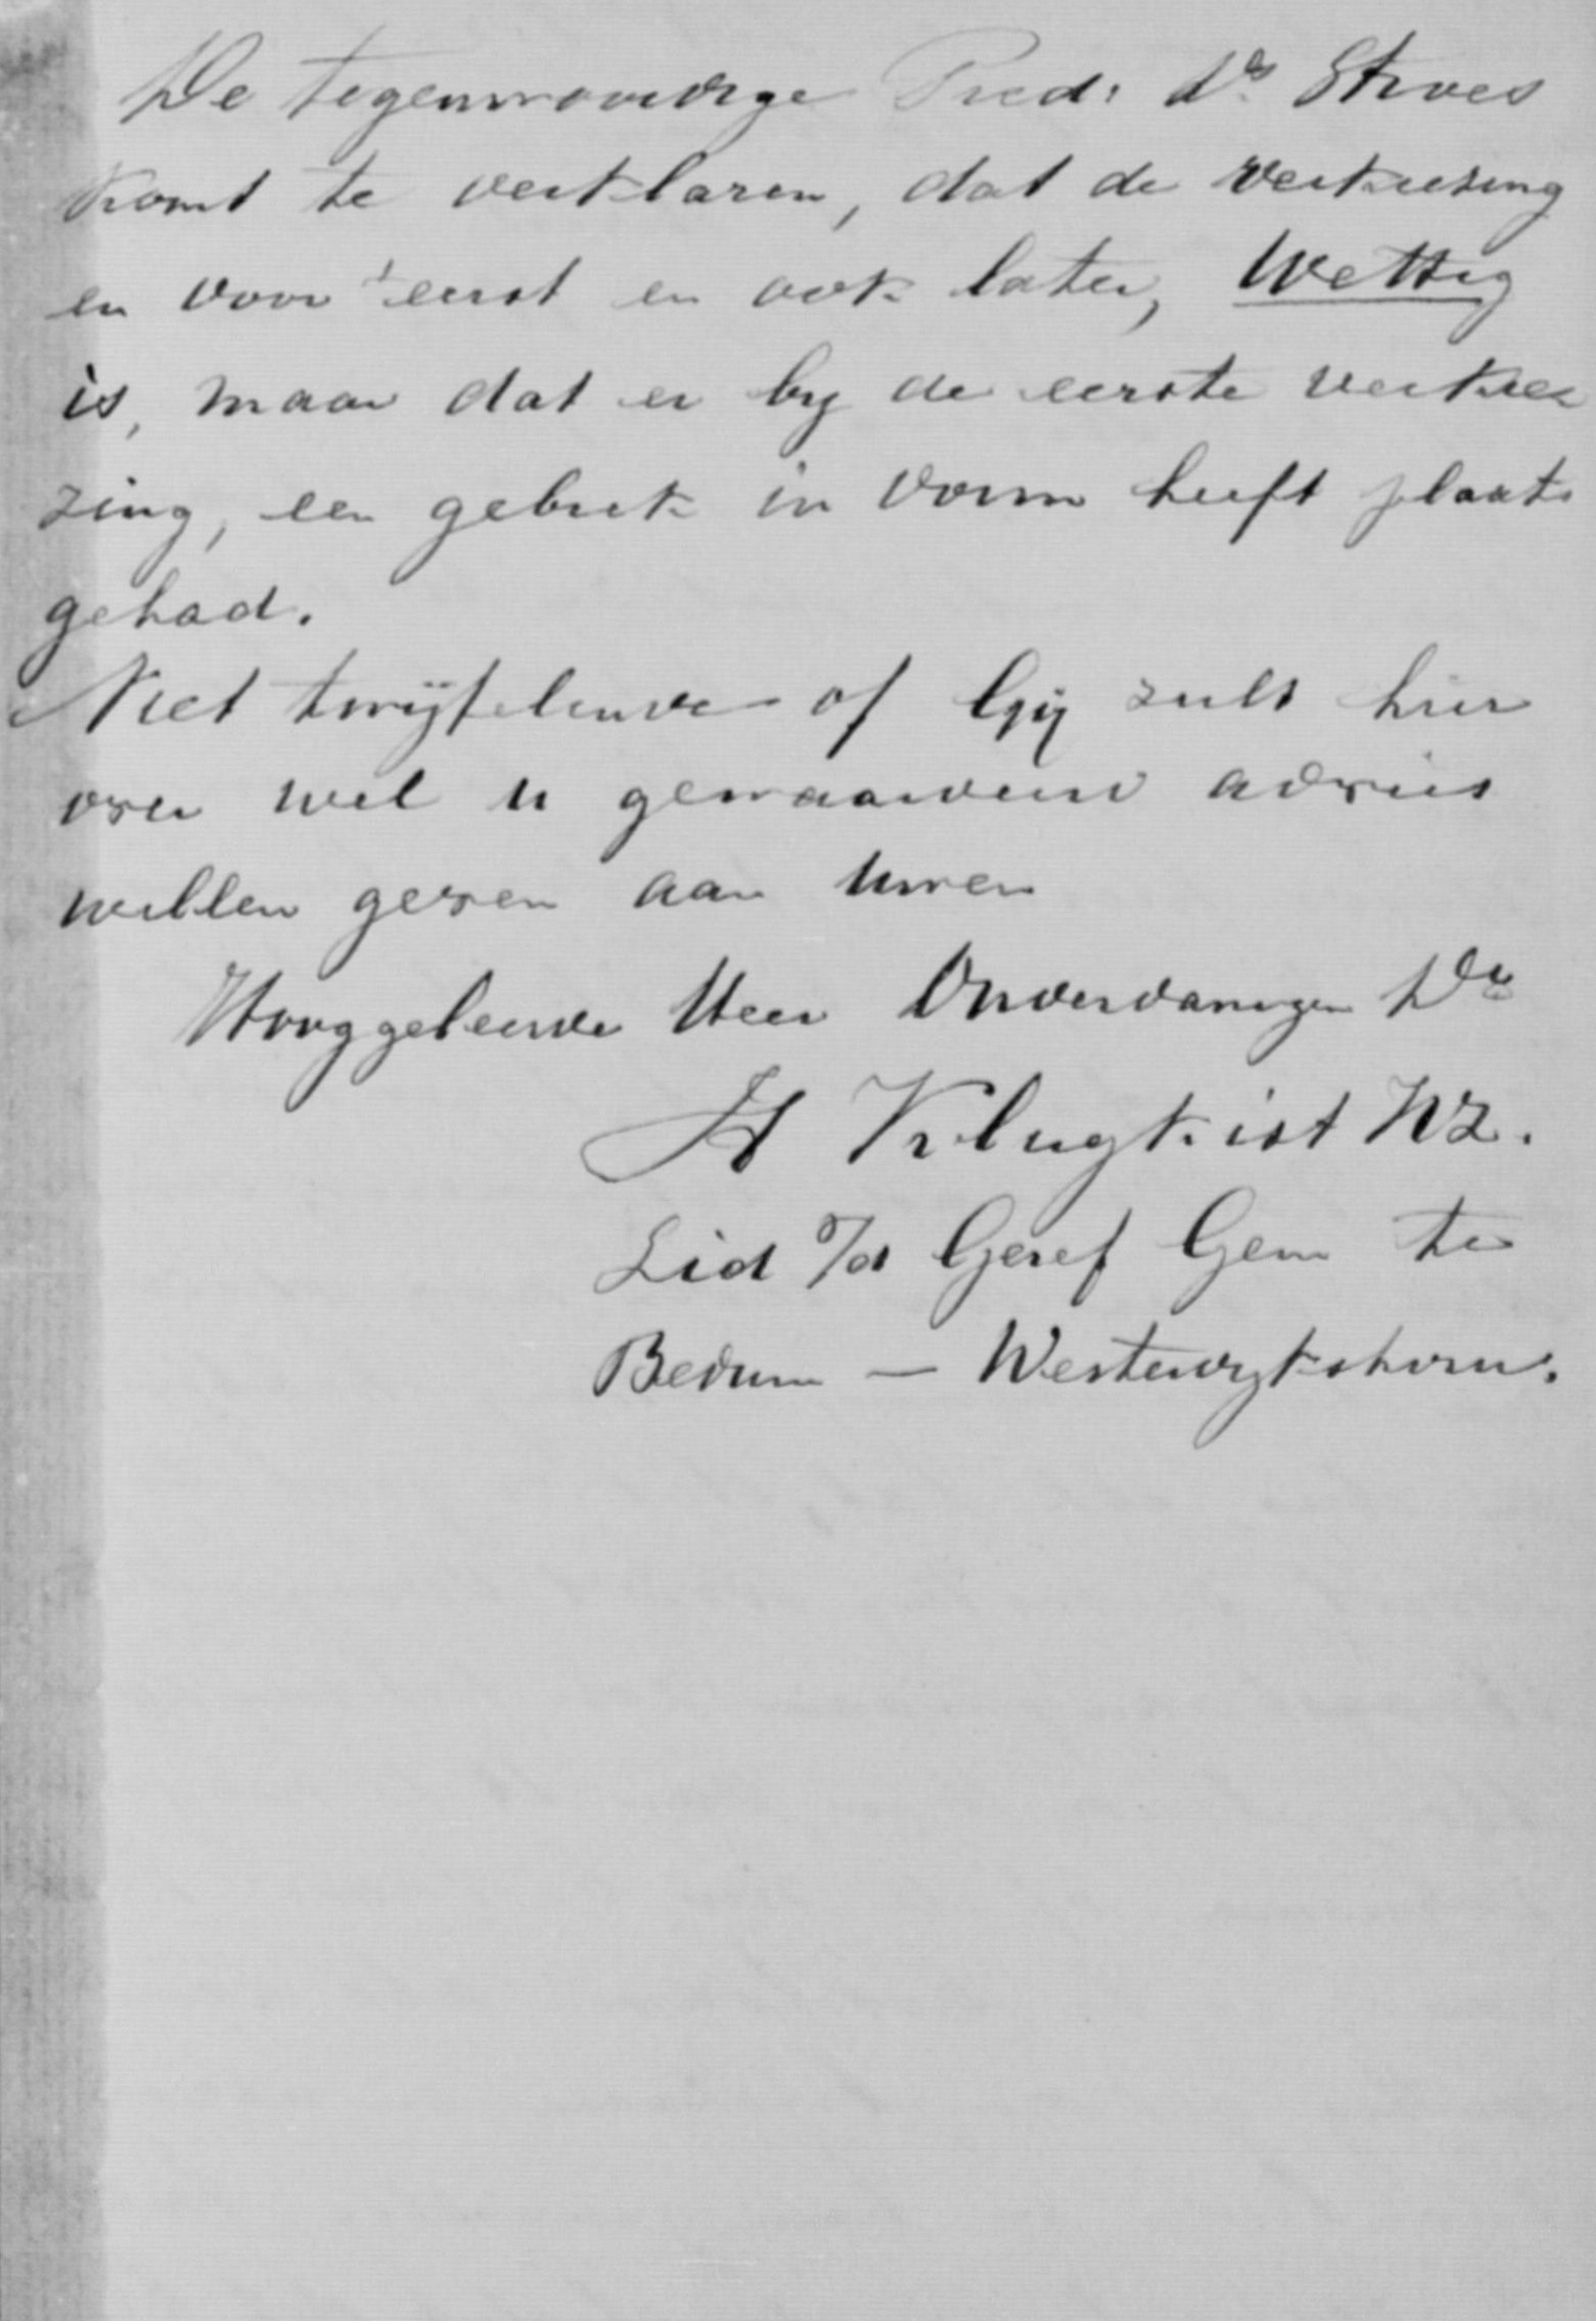 De tegenwoordige Pred. Ds Stroes
komt te verklaren, dat de verkiezing
en voor 't eerst en ook later, Wettig
is, maar dat er by de eerste verkie
zing, een gebrek in vorm heeft plaats
gehad.
Niet twijfelende of Gij zult hier
over wel u gewaardeerd advies
willen geven aan Uwen
Hooggeleerde Heer Onderdanigen Dr
H Klugkist Hz.
Lid v/d Geref Gem te
Bedum — Westerdykshorn.